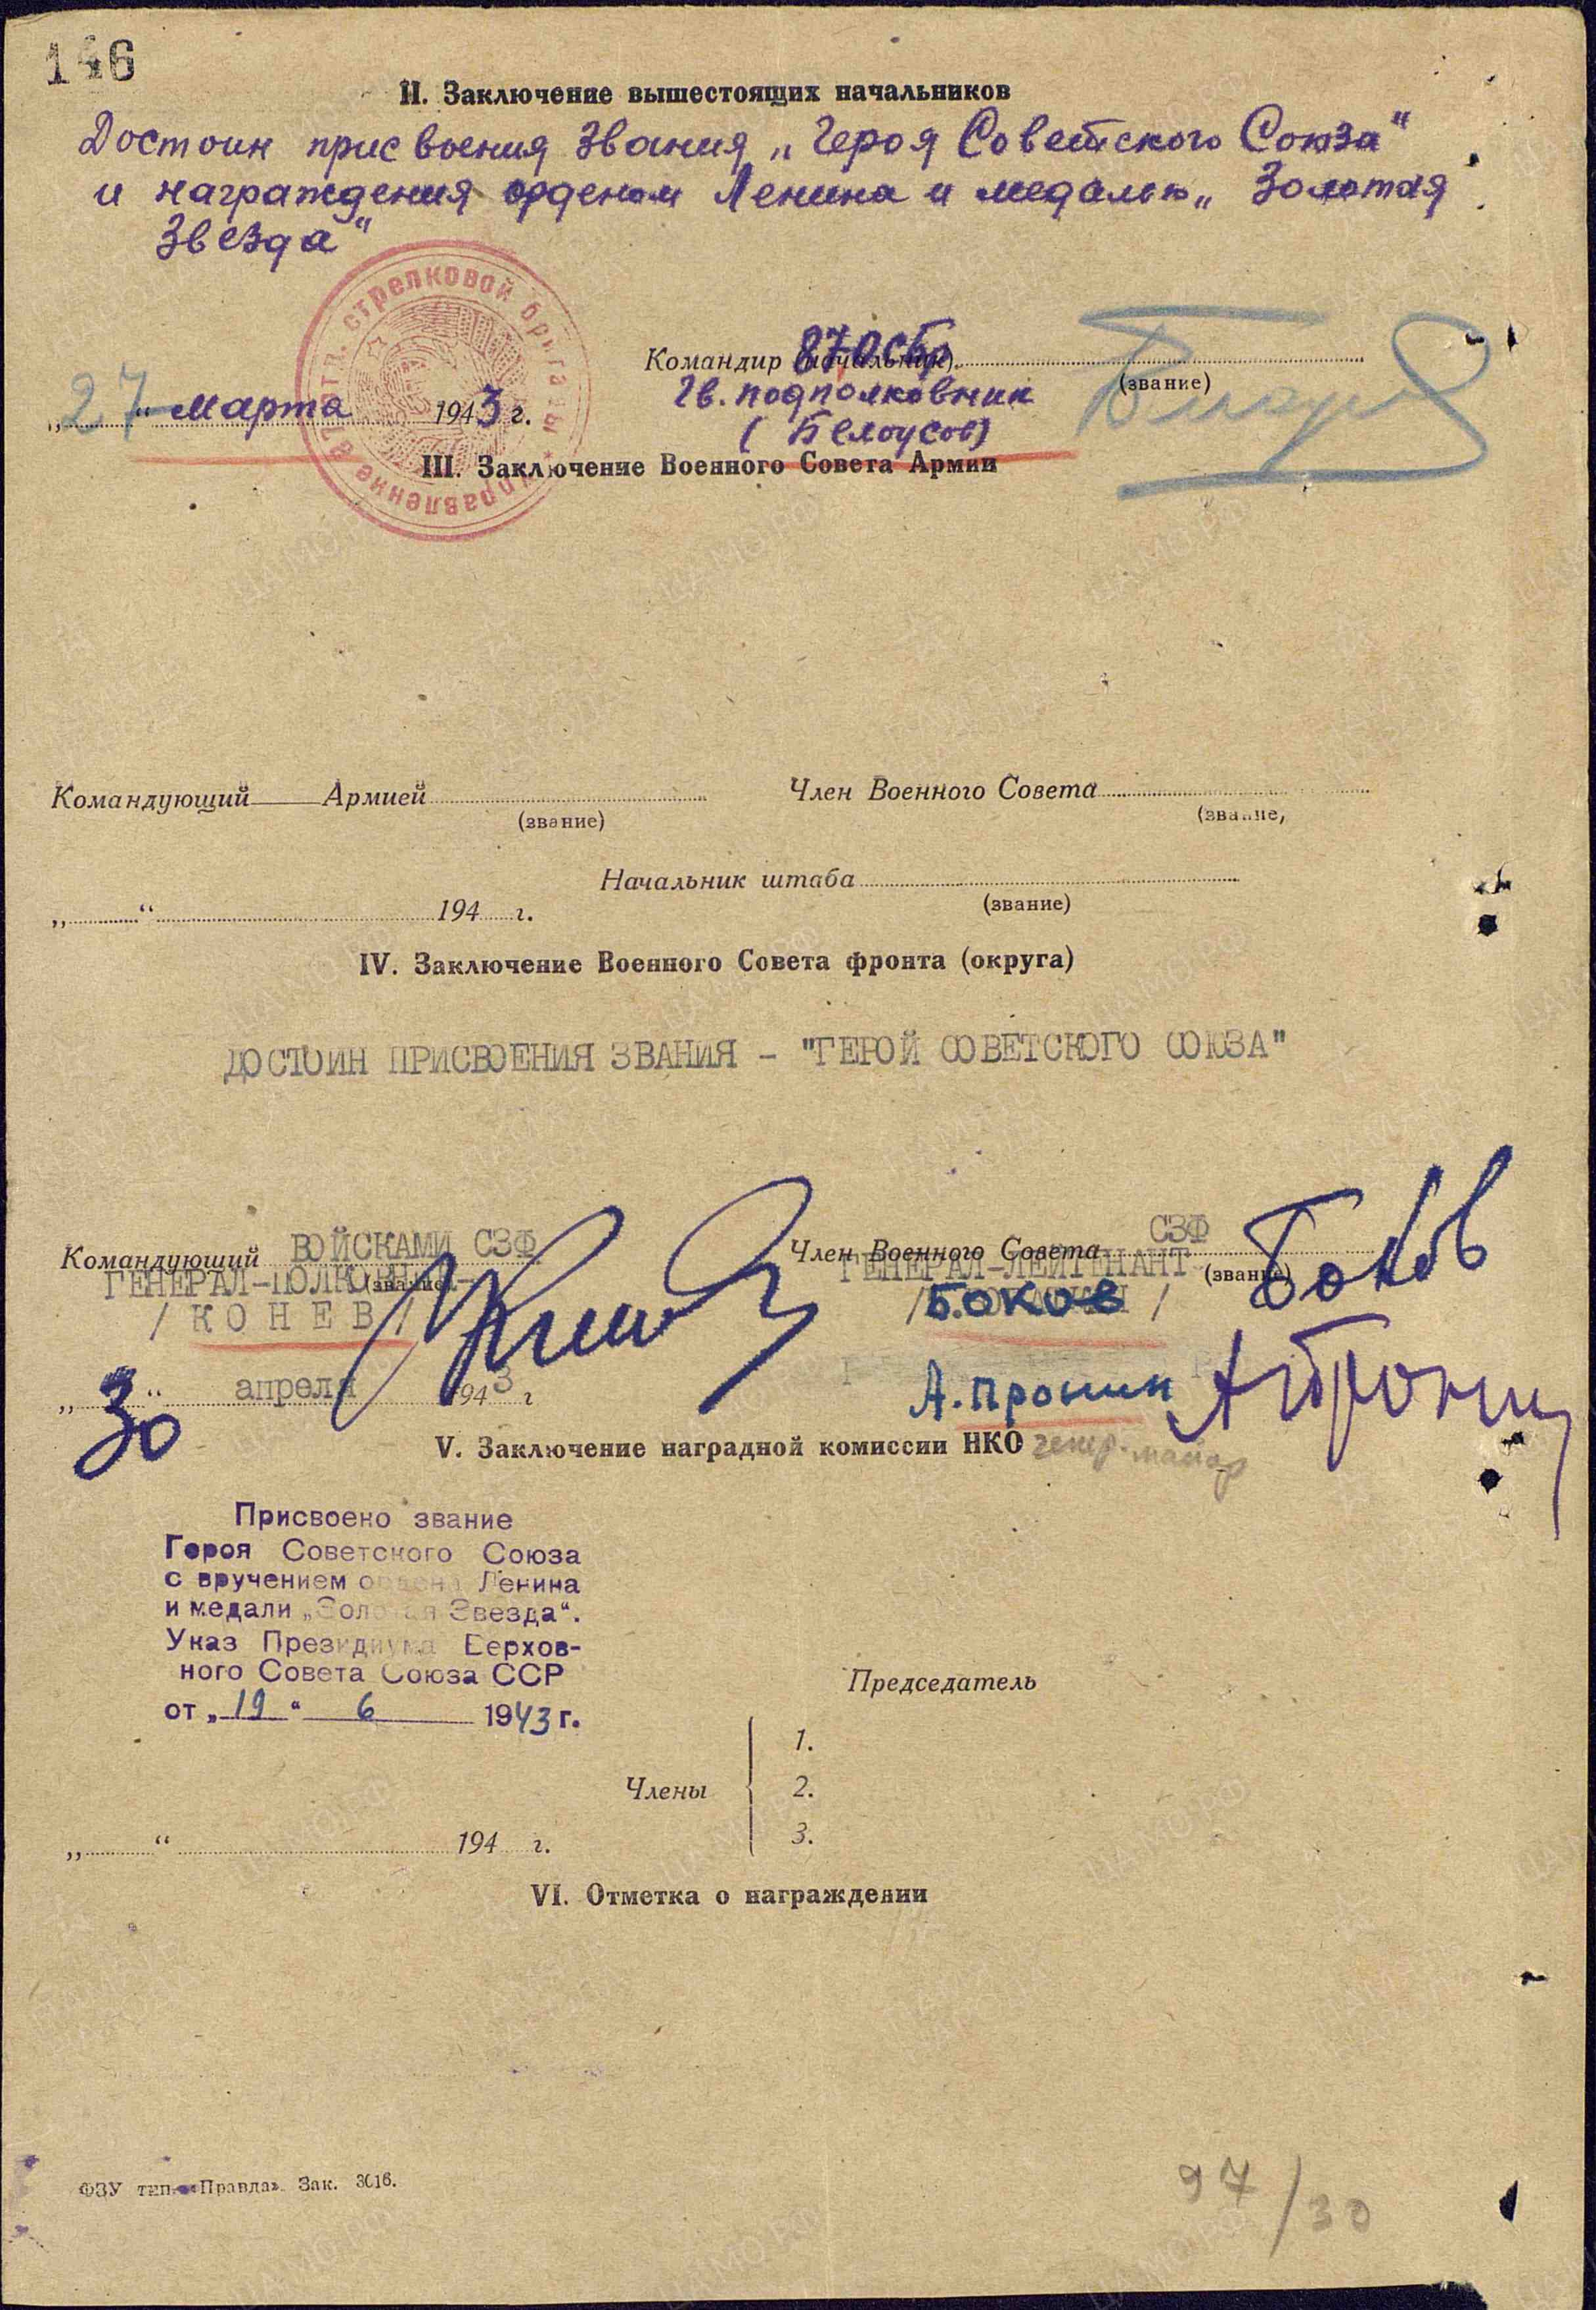 146
II. Заключение вышестоящих начальников
Достоин присвоения звания „Героя Советского Союза“
и награждения орденом Ленина и медалью „Золотая
Звезда“
Управление 87 отд. стрелковой бригады
Командир (начальник) 87 ОСбр
(звание)
Гв. подполковник
(Белоусов)
„27“ марта 1943 г.
III. Заключение Военного Совета Армии
Командующий Армией
(звание)
Член Военного Совета
(звание,
Начальник штаба
(звание)
„ “ 194 г.
IV. Заключение Военного Совета фронта (округа)
ДОСТОИН ПРИСВОЕНИЯ ЗВАНИЯ - "ГЕРОЙ СОВЕТСКОГО СОЮЗА"
Командующий ВОЙСКАМИ СЗФ
ГЕНЕРАЛ-ПОЛКОВНИК
(звание)
/ КОНЕВ /
Член Военного Совета СЗФ
ГЕНЕРАЛ-ЛЕЙТЕНАНТ
(звание)
/Боков /
Боков
„30“ апреля 1943 г
А. Пронин
АПронин
V. Заключение наградной комиссии НКО
генер.-майор
Присвоено звание
Героя Советского Союза
с вручением ордена Ленина
и медали „Золотая Звезда“.
Указ Президиума Верхов-
ного Совета Союза ССР
от „19“ 6 1943 г.
Председатель
Члены
1.
2.
3.
„ “ 194 г.
VI. Отметка о награждении
ФЗУ тип. «Правда». Зак. 3016.
97/30